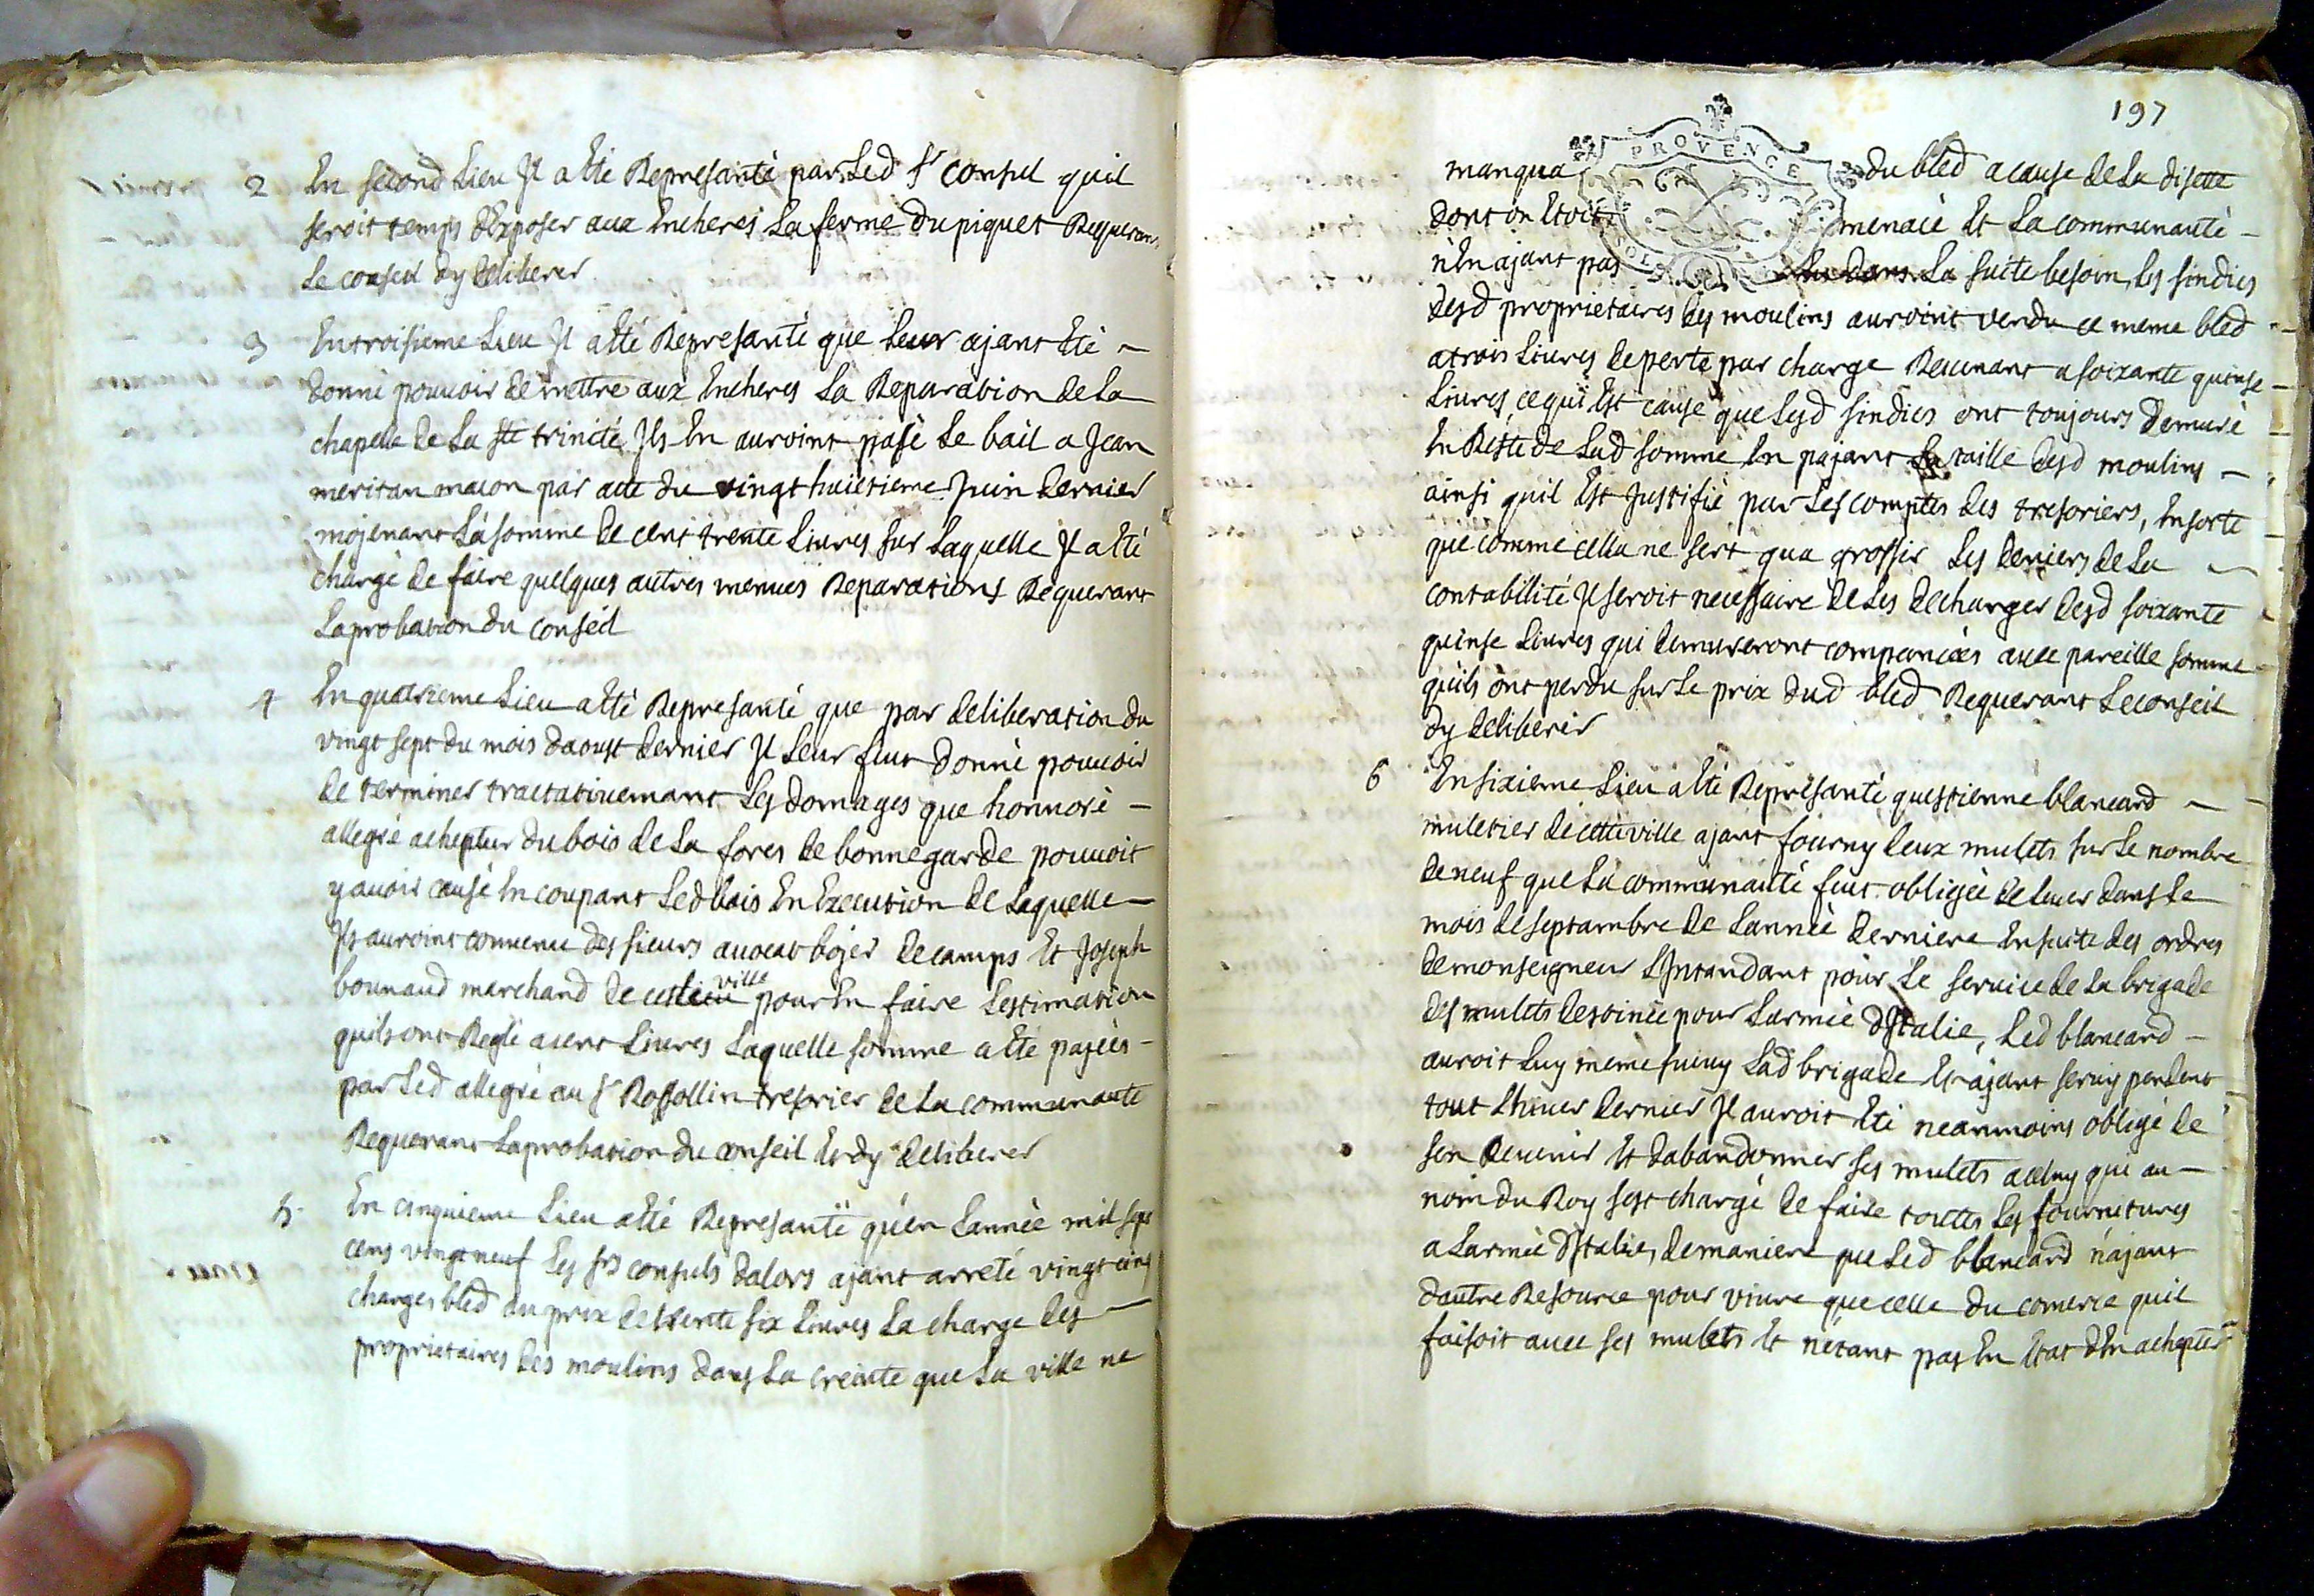 2 En second Lieu Il a Eté Represanté par Led Sr consul quil
seroit temps d'Exposer aux Encheres La ferme du piquet Requerant
Le conseil dy deliberer
3 En troisieme Lieu Il a Eté Represanté que Leur ajant Eté
donné pouvoir de mettre aux Encheres La Reparation de La
chapelle de La Ste trinité Ils En auroint pasé Le bail a Jean
meritan macon par acte du vingt huictieme Juin dernier
mojenant La somme de cent trente Livres sur Laquelle Il a Eté
chargé de faire quelques autres menues Reparations Requerant
Laprobation du conseil
4 En quatrieme Lieu a Eté Represanté que par deliberation du
vingt sept du mois daoust dernier Il Leur feut donné pouvoir
de terminer tractativemant Les domages que honnoré
allegre achepteur du bois de La fores de bonnegarde pouvoit
y avoir causé En coupant Led bois En Execution de Laquelle
Ils auroint convenu des sieurs avocat bojer de camps Et Joseph
bounaud marchand de cette ville pour En faire Lestimation
quils ont Reglé a cent Livres Laquelle somme a Eté pajéés
par Led allegre au Sr Rossollin tresorier de La communauté
Requerant Laprobation du conseil Et dy deliberer
5 En cinquieme Lieu a Eté Represanté qu'en Lannèe mil sept
cens vingt neuf Les srs consuls dalors ajant arreté vingt cinq
charges bled au prix de trente six Livres La charge des
proprietaires des moulins dans La creinte que La ville ne
197
PROVENCE
manqua du bled a cause de La disette
dont on Etoit menacé Et La communauté
n'En ajant pas Eu dans La suite besoin, Les sindics
desd proprietaires des moulins auroint vendu ce meme bled
a trois Livres de perte par charge Revenant a soixante quinse
Livres, ce qui Est cause que Lesd sindics ont toujours demuré
En Reste de Lad somme En pajant La taille desd moulins
ainsi quil Est Justifié par Les comptes des tresoriers, En sorte
que comme cella ne sert qua grossir Les deniers de La
contabilité Il seroit necessaire de Les decharger desd soixante
quinse Livres qui demureront compencées avec pareille somme
quils ont perdu sur Le prix dud bled Requerant Le conseil
dy deliberer
6 En sixieme Lieu a Eté Represanté questienne blancard
muletier de cette ville ajant fourny deux mulets sur Le nombre
de neuf que La communauté feut obligée de Lever dans Le
mois de septambre de Lannèe derniere En suite des ordres
de monseigneur L'Intandant pour Le service de La brigade
des mulets destinée pour Larmée d'Italie, Led blancard
auroit Luy meme suivy Lad brigade Et ajant servy pendent
tout L'hiver dernier Il auroit Eté neanmoins obligé de
sen Revenir Et dabandonner ses mulets a celuy qui au
nom du Roy sest chargé de faire touttes Les fournitures
a Larmée d'Italie, de maniere que Led blancard n'ajant
dautre Resource pour vivre que celle du comerce quil
faisoit avec ses mulets Et n'étant pas En Etat d'En achepter